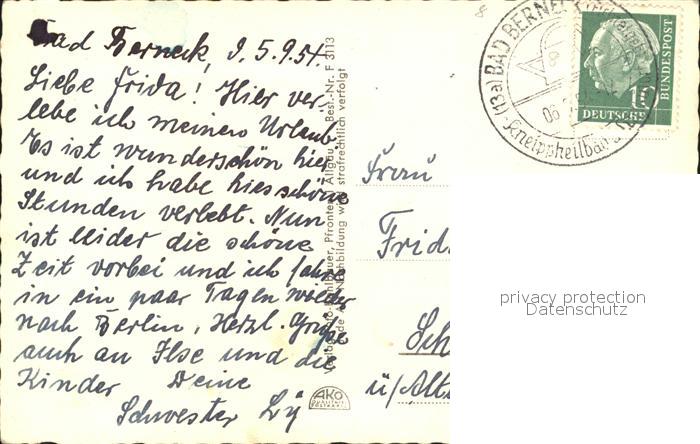 Bad Berneck, d. 5.9.54.
Liebe Frida! Hier ver-
lebe ich meinen Urlaub.
Es ist wunderschön hier
und ich habe hier schöne
Stunden verlebt. Nun
ist leider die schöne
Zeit vorbei und ich fahre
in ein paar Tagen wieder
nach Berlin, Herzl. Grüße
auch an Ilse und die
Kinder Deine
Schwester
Pfronten Allgäu, Best.-Nr. F 3113
strafrechtlich verfolgt
AKO
(13a) BAD BERNECK
06
Kneippheilbad
10
DEUTSCHE
BUNDESPOST
Frau
Frid
Sch
ü/Alt
privacy protection
Datenschutz